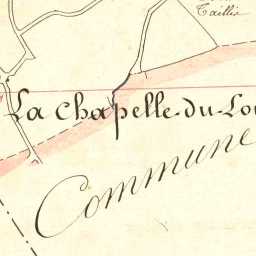 Taillis
La Chapelle-du-Lou
Commune